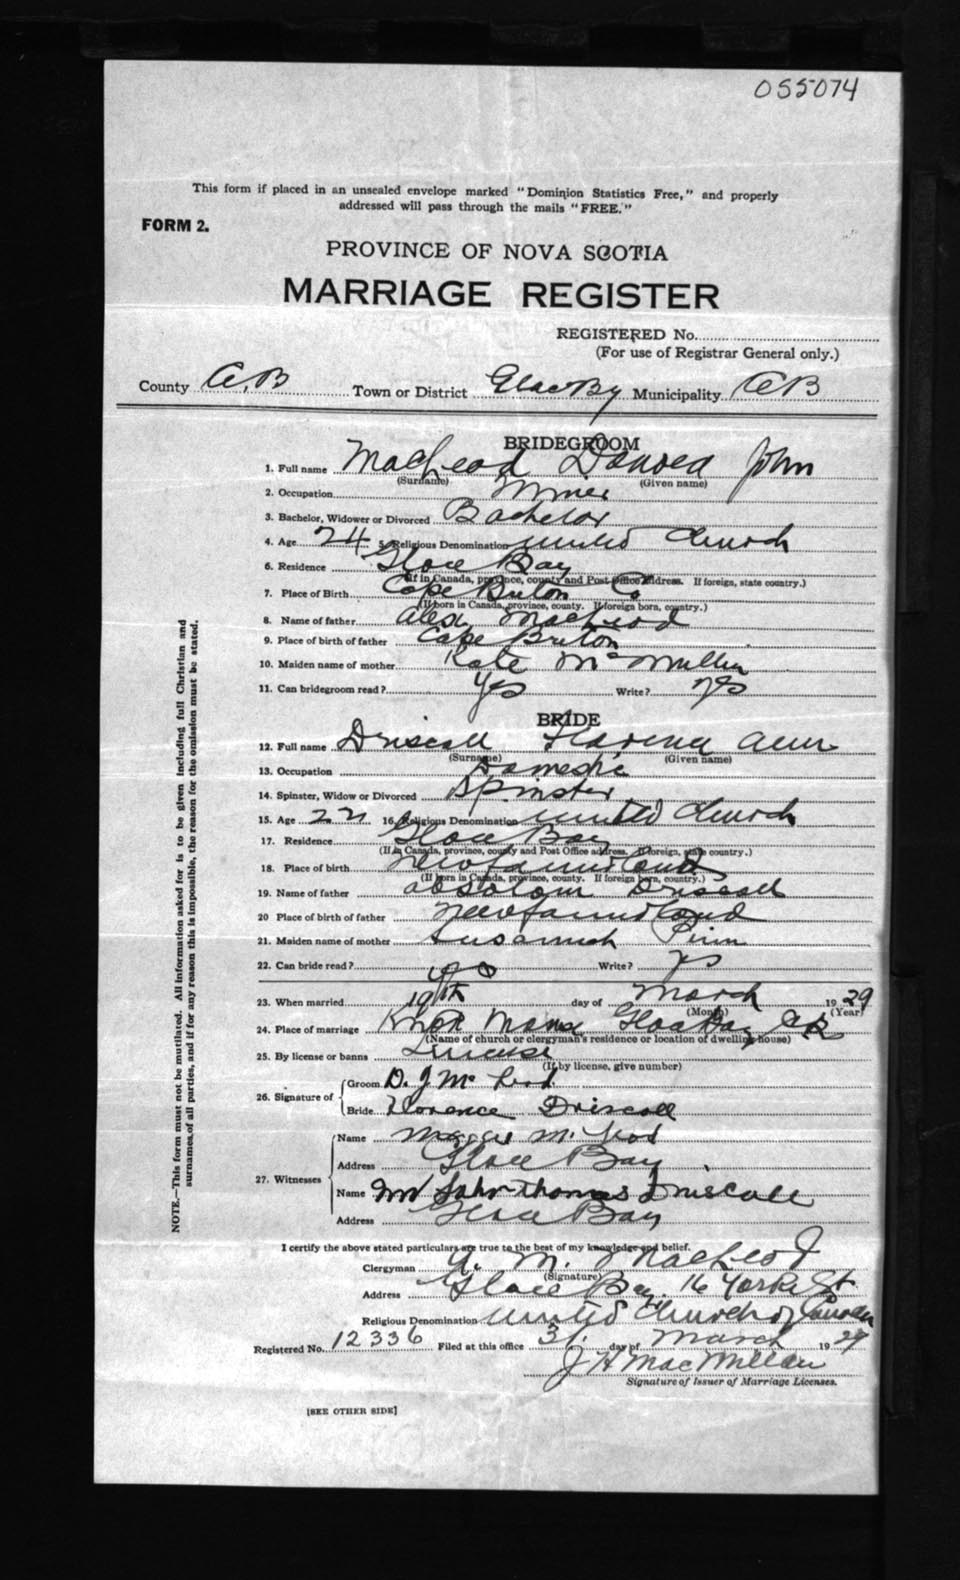 055074
This form if placed in an unsealed envelope marked "Dominion Statistics Free," and properly
addressed will pass through the mails "FREE."
FORM 2.
PROVINCE OF NOVA SCOTIA
MARRIAGE REGISTER
REGISTERED No.
(For use of Registrar General only.)
County C.B Town or District Glace By Municipality CB
BRIDEGROOM
1. Full name MacLeod Donald John
(Surname) (Given name)
2. Occupation Miner
3. Bachelor, Widower or Divorced Bachelor
4. Age 24 5. Religious Denomination United Church
6. Residence Glace Bay
(If in Canada, province, county and Post Office address. If foreign, state country.)
7. Place of Birth Cape Breton Co
(If born in Canada, province, county. If foreign born, country.)
8. Name of father Alex MacLeod
9. Place of birth of father Cape Breton
10. Maiden name of mother Kate McMullin
11. Can bridegroom read? Yes Write? Yes
BRIDE
12. Full name Driscoll Florence Ann
(Surname) (Given name)
13. Occupation Domestic
14. Spinster, Widow or Divorced Spinster
15. Age 22 16. Religious Denomination United Church
17. Residence Glace Bay
(If in Canada, province, county and Post Office address. If foreign, state country.)
18. Place of birth Newfoundland
(If born in Canada, province, county. If foreign born, country.)
19. Name of father Absolom Driscoll
20 Place of birth of father Newfoundland
21. Maiden name of mother Susannah
22. Can bride read? Yes Write? Yes
23. When married 19th day of March 1929
(Month) (Year)
24. Place of marriage Knox Manse Glace Bay CB
(Name of church or clergyman's residence or location of dwelling house)
25. By license or banns License
(If by license, give number)
26. Signature of Groom D. J Mc Leod
Bride Florence Driscoll
27. Witnesses Name Maggie McLeod
Address Glace Bay
Name John Thomas Driscoll
Address Glace Bay
I certify the above stated particulars are true to the best of my knowledge and belief.
Clergyman A. M. MacLeod
(Signature)
Address Glace Bay. 16 Yorke St.
Religious Denomination United Church of Canada
Registered No. 12336 Filed at this office 31. day of March 1929
J H MacMillan
Signature of Issuer of Marriage Licenses.
[SEE OTHER SIDE]
NOTE.—This form must not be mutilated. All information asked for is to be given including full Christian and
surnames of all parties, and if for any reason this is impossible, the reason for the omission must be stated.